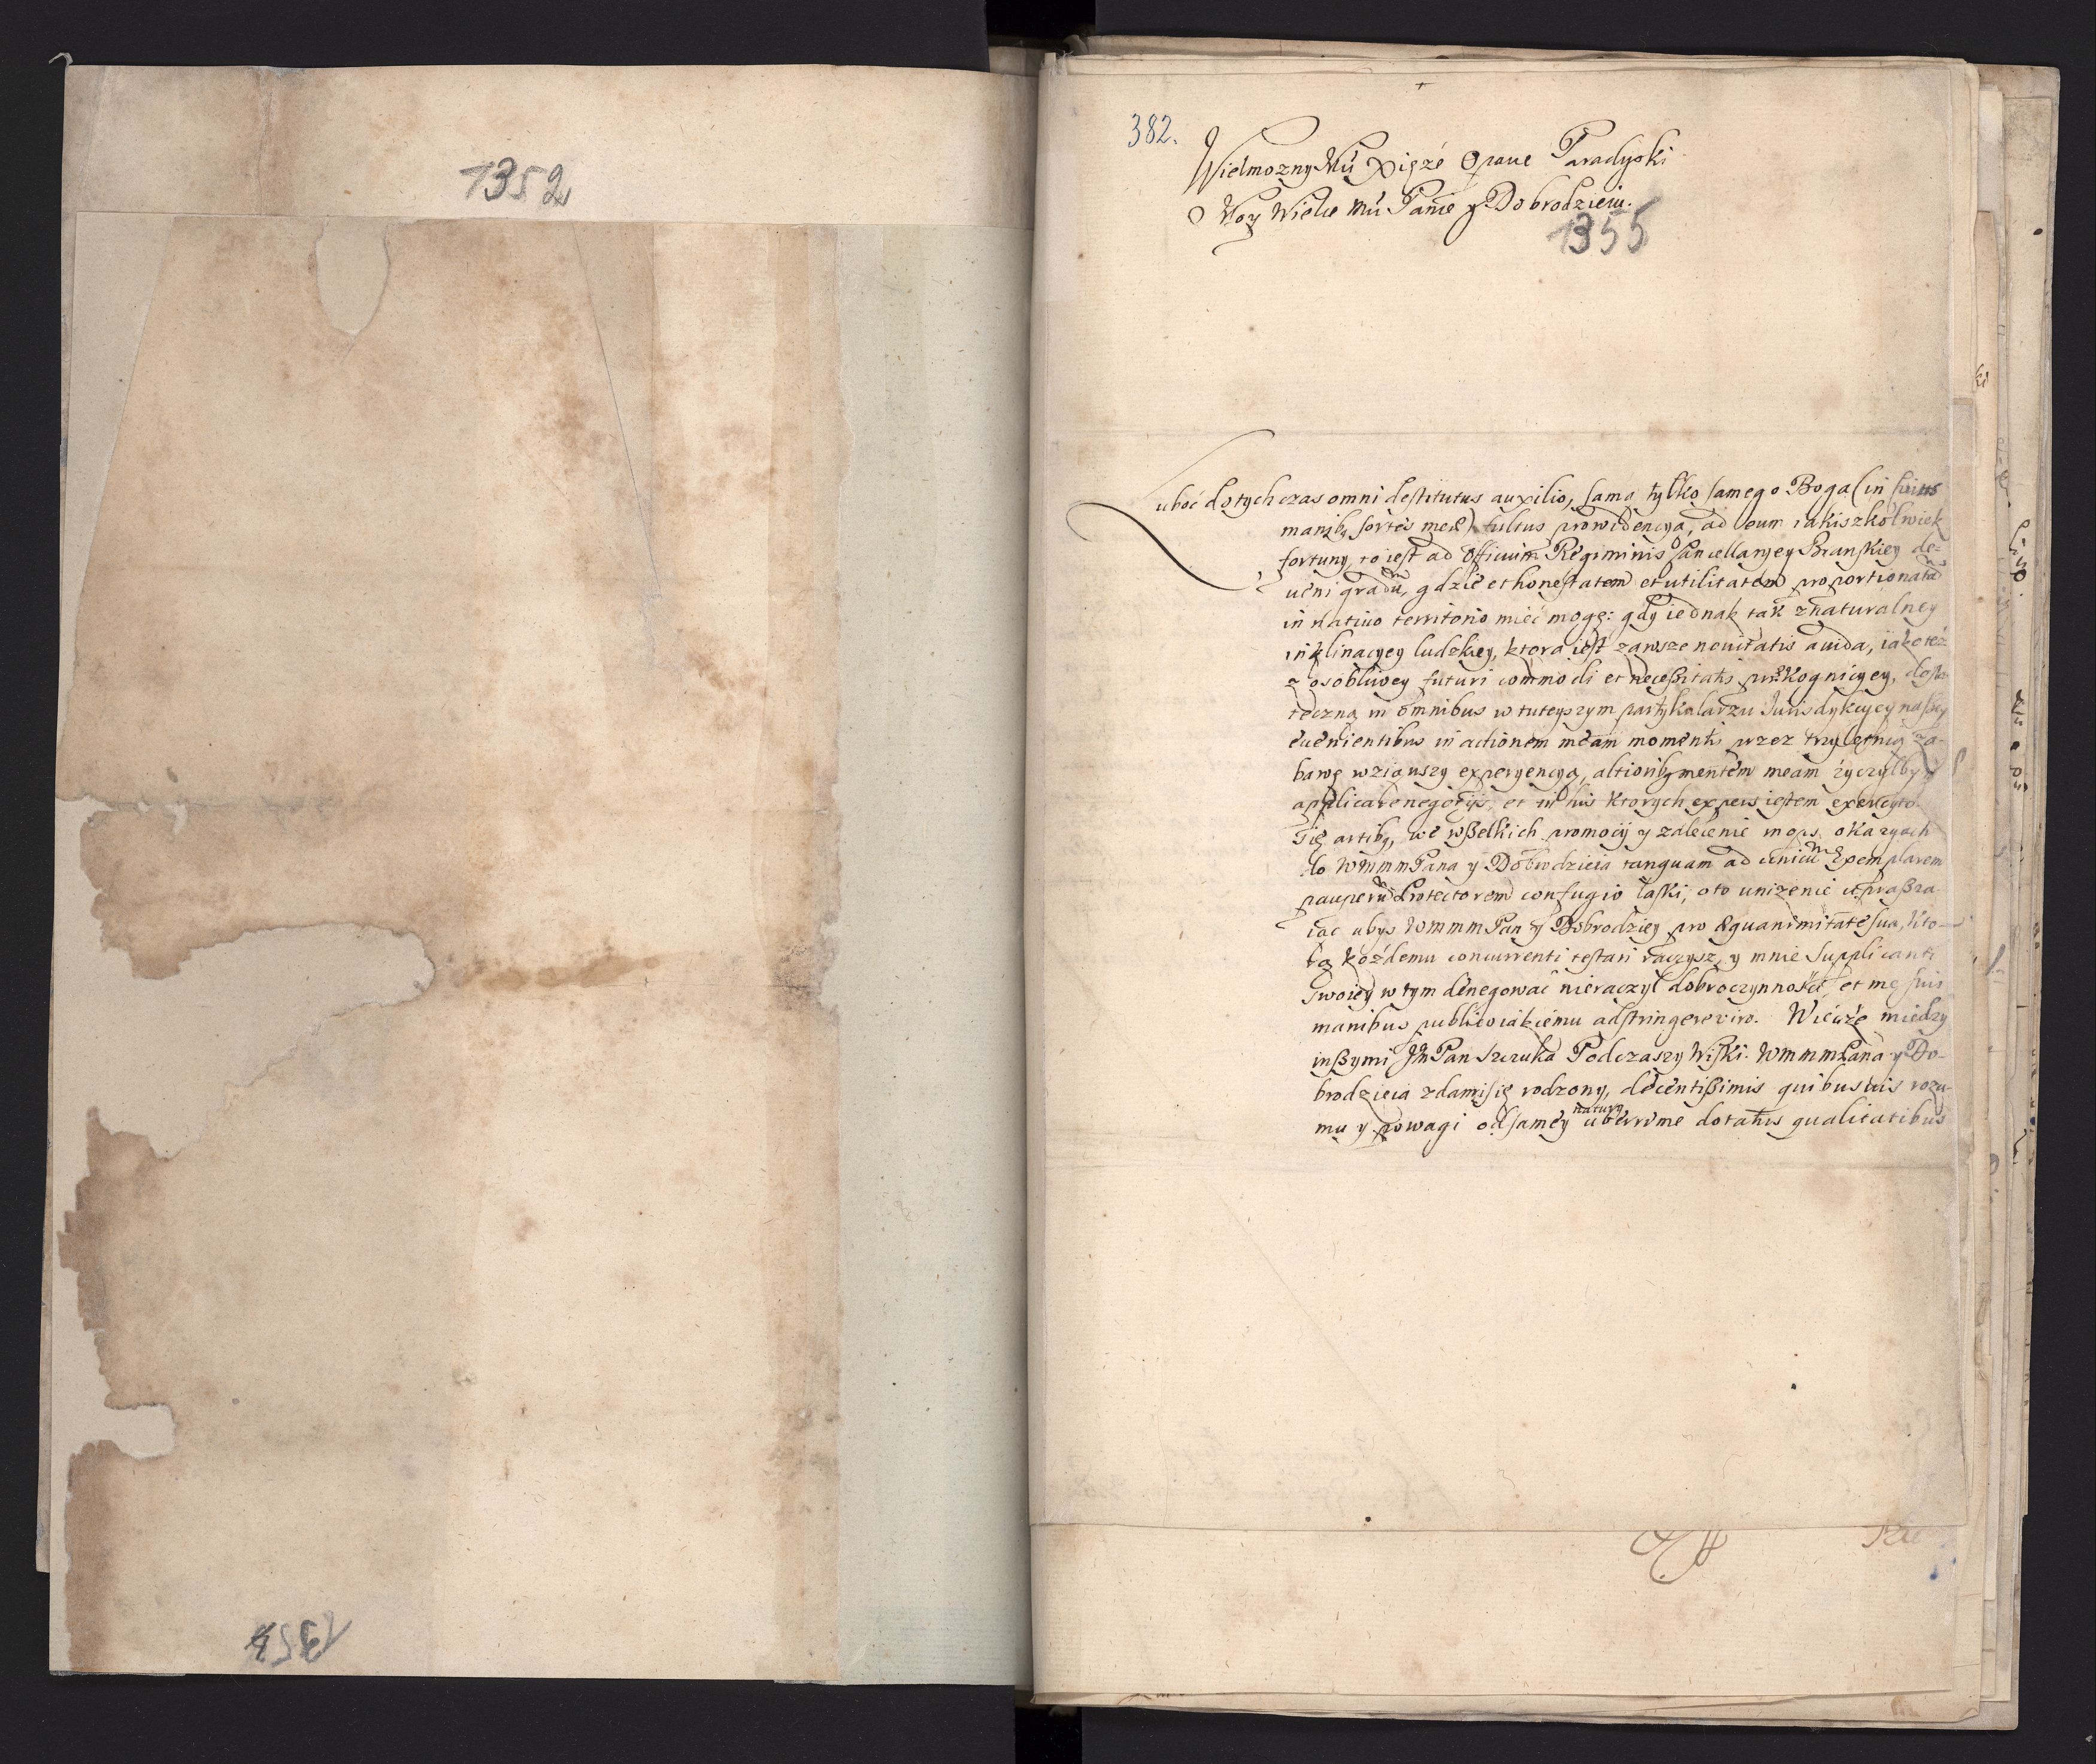 1352
1354
382.
Wielmozny Mći Xięże Opacie Paradyski
Moy Wielce Mći Panie y Dobrodzieiu.
1355
Luboć dotychczas omni destitutus auxilio, samą tylko samego Boga (in cuius
manibq sortes meæ) fultus prowidencyą, ad eum iakiszkolwiek
fortuny, to iest ad Officium Regiminis Cancellaryey Branskiey de=
veni gradum, gdzie et honestatem et utilitatem proportionatam
in nativo territorio mieć mogę: gdy iednak tak z naturalney
inklinacyey ludzkiey, ktora iest zawsze novitatis avida, iako też
z osobliwey futuri commodi et necessitatis prækognicyey, dosta
teczną in omnibus w tuteyszym partykularzu Jurisdykcyey naszey
evenientibus in actionem meam momentis przez trzyletnią za-
bawę wziąwszy experyencyą, altioribq mentem meam życzyłbym
applicare negotijs, et in his ktorych expers iestem exercyto
się artibq, we wszelkich promocij y zalecenie inops okazyach
do WMMM Pana y Dobrodzieia tanquam ad unicum Exemplarem
pauperum Protectorem confugio łaski, oto uniżenie uprasza
iąc abyś WMMM Pan y Dobrodziey pro æquanimitate sua, kto-
rą każdemu concurrenti testari raczysz, y mnie supplicanti
swoiey w tym denegować nieraczył dobroczynności, et me suis
manibus publico iakiemu adstringere viro. Wieize między
inszymi Jm Pan Szczuka Podczaszy Wiski. WMMM Pana y Do-
brodzieia zdami się rodzony, decentissimis quibusvis rozu-
mu y powagi od samey natury uberrime dotatus qualitatibus